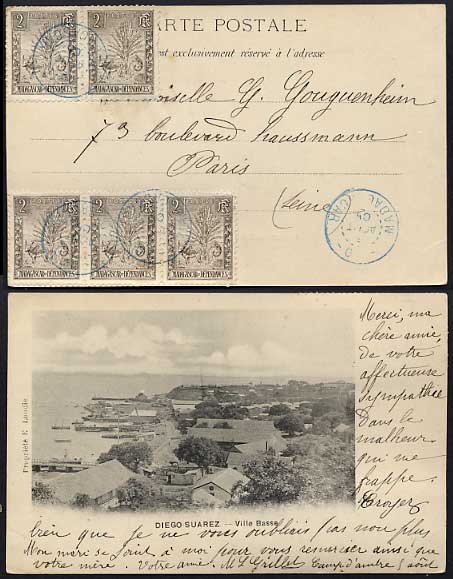 CARTE POSTALE
est exclusivement réservé à l'adresse
2 RF 2 RF
MADAGASCAR-DÉPENDANCES MADAGASCAR-DÉPENDANCES
G. Gouguenheim
73 boulevard haussmann
Paris
(Seine)
2 RF 2 RF 2 RF
MADAGASCAR-DÉPENDANCES MADAGASCAR-DÉPENDANCES MADAGASCAR-DÉPENDANCES
Merci, ma
chère amie,
de votre
affectueuse
sympathie
Dans le
malheur
qui me
frappe.
Croyez
Propriété E.
DIEGO SUAREZ -- Ville Basse
bien que je ne vous oubliais pas non plus
Mon mari se joint à moi pour vous remercier ainsi que
votre mère. Votre amie. 5 août